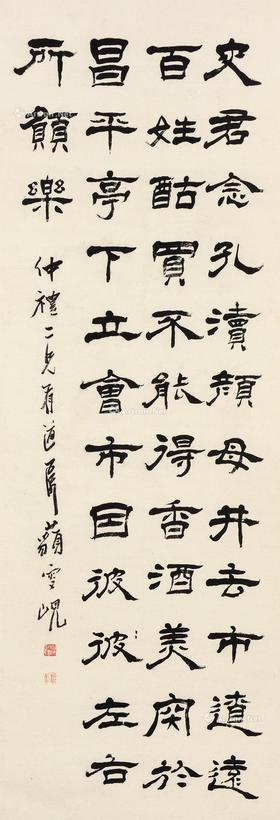 史君念孔瀆顏母井去市遼遠
百姓酤買不能得香酒美宍於
昌平亭下立會市因彼彼左右
所願樂
仲禮二兄有道屬 雪峴